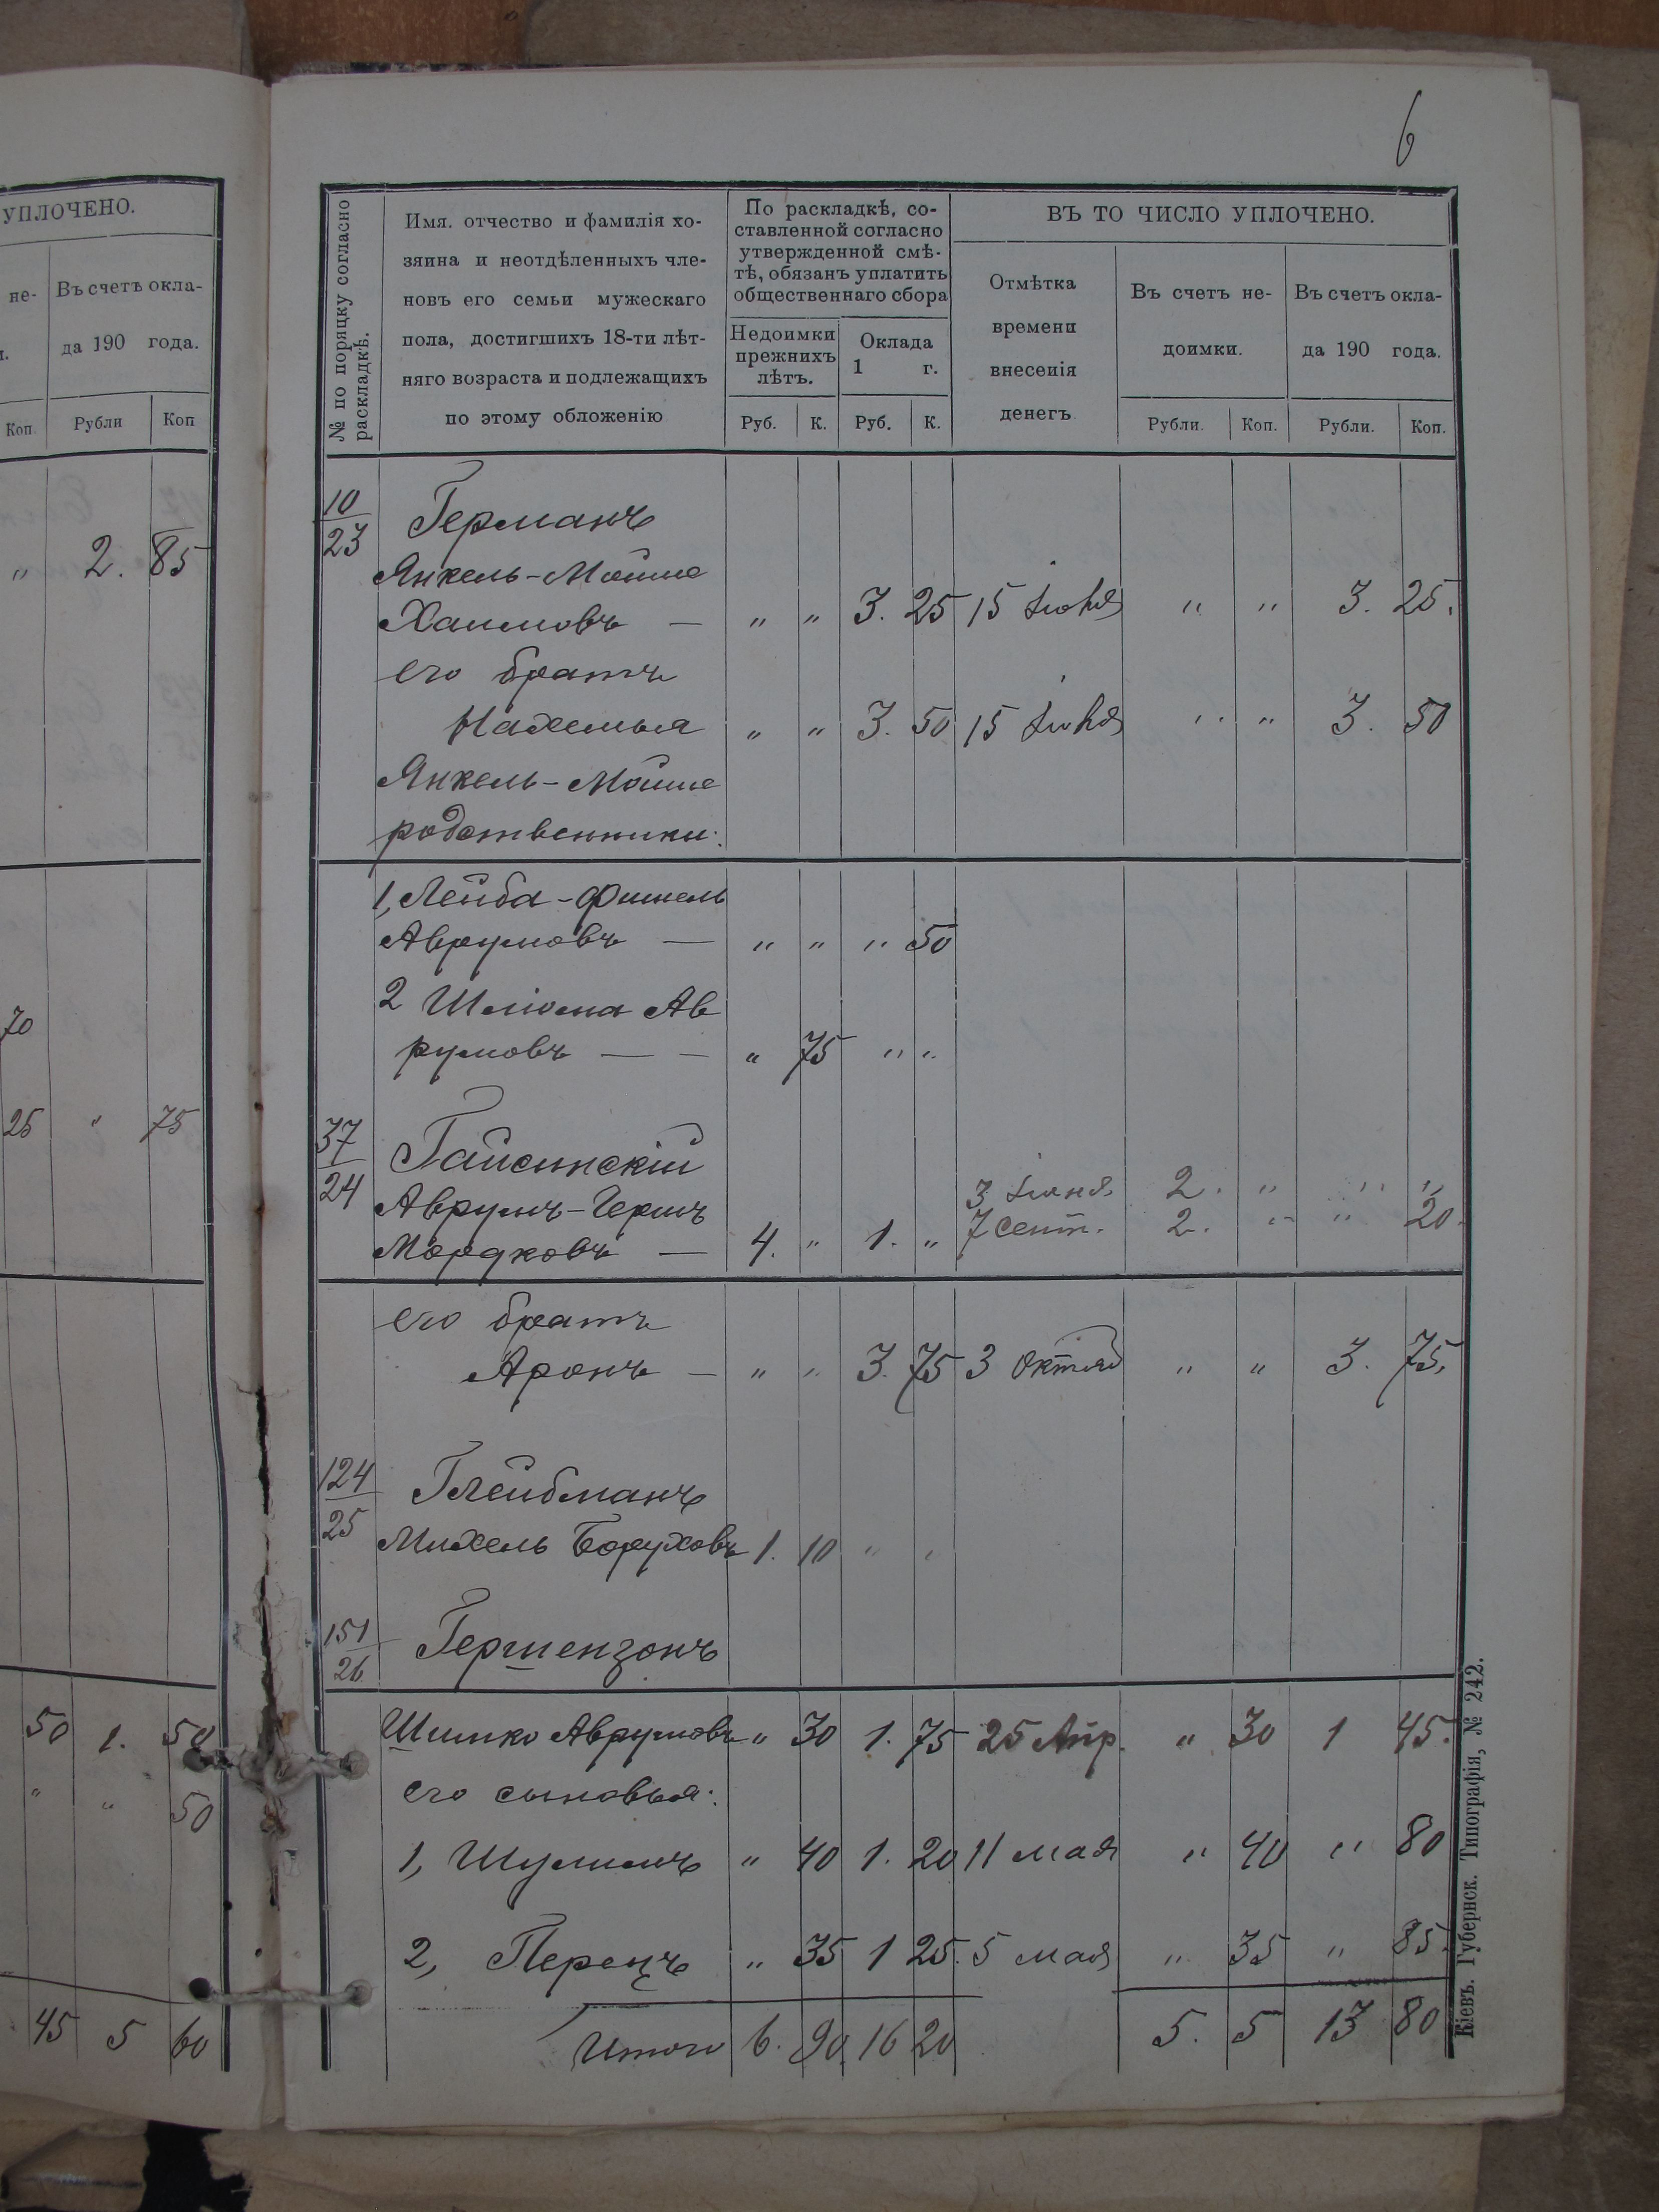 УПЛОЧЕНО.
не-
Въ счетъ окла-
да 190 года.
Коп.
Рубли
Коп
" 2. 85
70
25 " 75
50 1. 50
" " 50
45 5 60
6
№ по порядку согласно
раскладкѣ.
Имя. отчество и фамилія хо-
зяина и неотдѣленныхъ чле-
новъ его семьи мужескаго
пола, достигшихъ 18-ти лѣт-
няго возраста и подлежащихъ
по этому обложенію
По раскладкѣ, со-
ставленной согласно
утвержденной смѣ-
тѣ, обязанъ уплатить
общественнаго сбора
Недоимки
прежнихъ
лѣтъ.
Оклада
1 г.
Руб. К. Руб. К.
ВЪ ТО ЧИСЛО УПЛОЧЕНО.
Отмѣтка
времени
внесенія
денегъ
Въ счетъ не-
доимки.
Въ счетъ окла-
да 190 года.
Рубли. Коп. Рубли. Коп.
10
23
Германъ
Янкель-Мошко
Хаимовъ — " " 3. 25 15 Іюня " " 3. 25.
его братъ
Нахемья " " 3. 50 15 Іюня " " 3. 50
Янкель-Мошко
родственники:
1, Лейба-Фишель
Аврумовъ — " " " 50
2 Шліома Ав
румовъ — — " 75 " "
37
24
Гайсинскій
Аврумъ-Гершъ 3 Іюня. 2. " " "
Мордковъ — 4. " 1. " 7 Сент. 2. " " 20.
его братъ
Аронъ — " " 3. 75 3 Октяб " " 3. 75.
124
25
Глейбманъ
Михель Боруховъ 1. 10 " "
151
26
Гершензонъ
Шимко Аврумовъ " 30 1. 75 25 Апр. " 30 1 45.
его сыновья:
1, Шулимъ " 40 1. 20 11 мая " 40 " 80
2, Перецъ " 35 1 25. 5 мая " 35 " 85.
Итого 6. 90. 16 20 5. 5 13 80
Кіевъ. Губернск. Типографія, № 242.